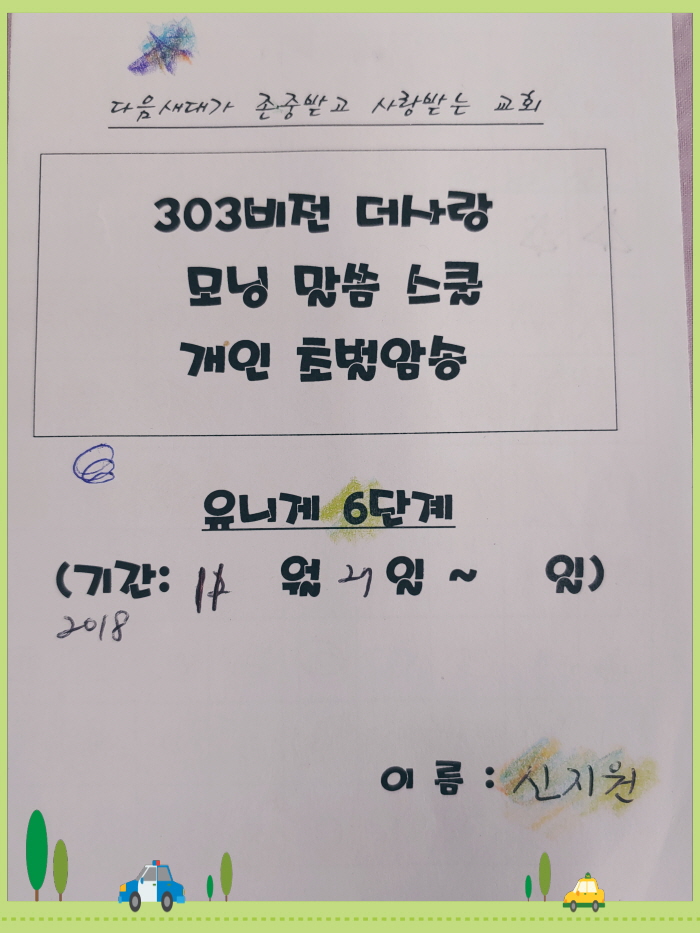 다음세대가 존중받고 사랑받는 교회
303비전 더사랑
모닝 말씀 스쿨
개인 초벌암송
유니게 6단계
(기간: 월 27일 ~ 일)
2018
이 름 : 신지원